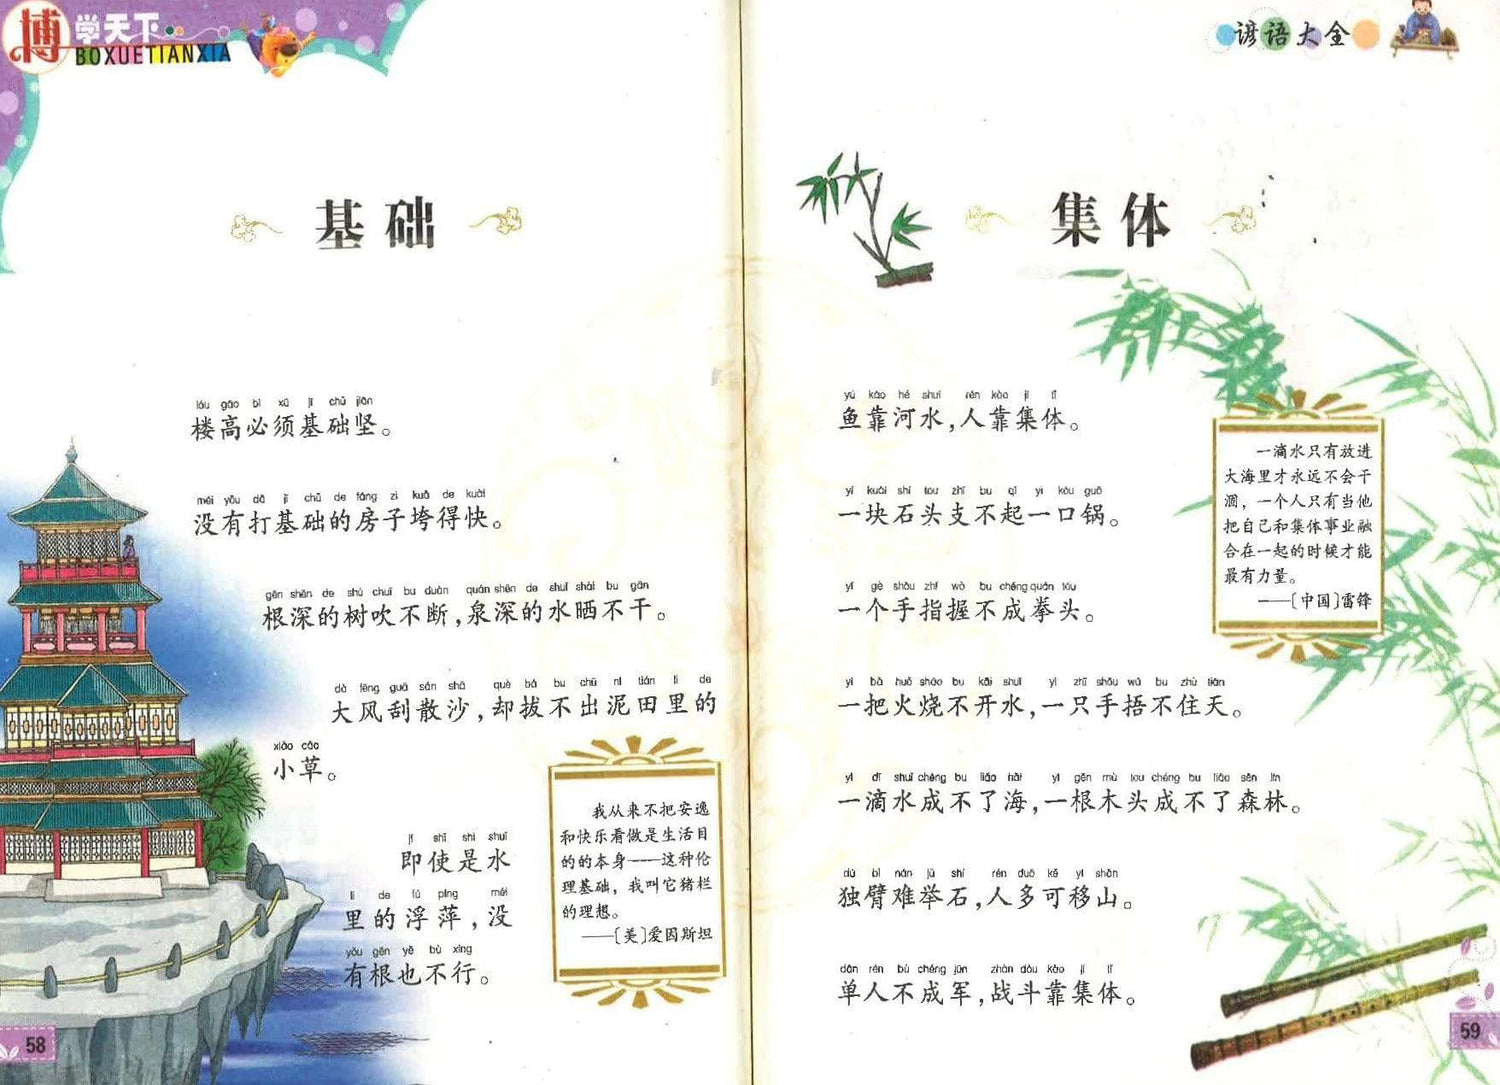 博学天下
BOXUETIANXIA
基础
lóu gāo bì xū jī chǔ jiān
楼高必须基础坚。
méi yǒu dǎ jī chǔ de fáng zi kuǎ de kuài
没有打基础的房子垮得快。
gēn shēn de shù chuī bu duàn quán shēn de shuǐ shài bu gān
根深的树吹不断,泉深的水晒不干。
dà fēng guā sàn shā què bá bu chū ní tián li de
大风刮散沙,却拔不出泥田里的
xiǎo cǎo
小草。
jí shǐ shì shuǐ
即使是水
li de fú píng méi
里的浮萍,没
yǒu gēn yě bù xíng
有根也不行。
我从来不把安逸
和快乐看做是生活目
的的本身——这种伦
理基础，我叫它猪栏
的理想。
——〔美〕爱因斯坦
58
谚语大全
集体
yú kào hé shuǐ rén kào jí tǐ
鱼靠河水,人靠集体。
yí kuài shí tou zhī bu qǐ yì kǒu guō
一块石头支不起一口锅。
yí gè shǒu zhǐ wò bu chéng quán tóu
一个手指握不成拳头。
yì bǎ huǒ shāo bu kāi shuǐ yì zhī shǒu wǔ bu zhù tiān
一把火烧不开水,一只手捂不住天。
yì dī shuǐ chéng bu liǎo hǎi yì gēn mù tou chéng bu liǎo sēn lín
一滴水成不了海,一根木头成不了森林。
dú bì nán jǔ shí rén duō kě yí shān
独臂难举石,人多可移山。
dān rén bù chéng jūn zhàn dòu kào jí tǐ
单人不成军,战斗靠集体。
一滴水只有放进
大海里才永远不会干
涸，一个人只有当他
把自己和集体事业融
合在一起的时候才能
最有力量。
——〔中国〕雷锋
59